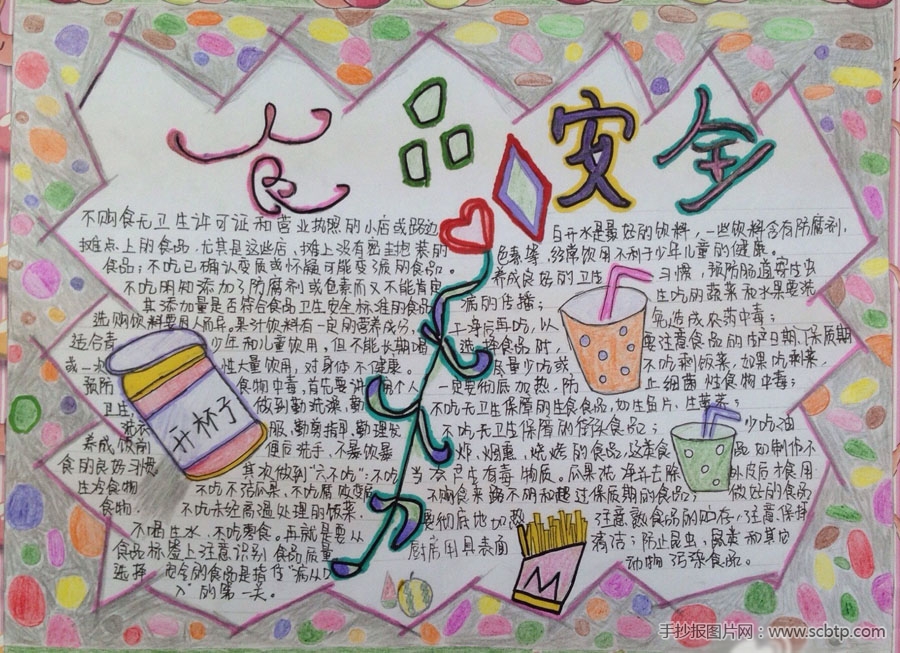 食品安全
不购食无卫生许可证和营业执照的小店或路边
摊点上的食品,尤其是这些店、摊上没有密封包装的
食品;不吃已确认变质或怀疑可能变了质的食品。
不吃明知添加了防腐剂或色素而又不能肯定
其添加量是否符合食品卫生安全标准的食品
选购饮料要因人而异。果汁饮料有一定的营养成分,
适合青少年和儿童饮用,但不能长期喝
或一次性大量饮用,对身体不健康。
预防食物中毒,首先要讲个人
卫生,做到勤洗澡、勤
服,勤剪指甲、勤理发
养成饭前便后洗手、不暴饮暴
食的良好习惯
其次做到“六不吃”:不吃
生冷食物不吃不洁瓜果、不吃腐败变质
食物.不吃未经高温处理的饭菜
不喝生水、不吃零食。再就是要从
食品标签上注意识别食品质量
选择安全的食品是指住“病从口
入”的第一关。
与开水是最好的饮料,一些饮料含有防腐剂,
色素等,经常饮用不利于少年儿童的健康。
养成良好的卫生习惯,预防肠道寄生虫
病的传播;生吃的蔬菜和水果要洗
干净后再吃,以免造成农药中毒;
选择食品时,要注意食品的生产日期、保质期
尽量少吃或不吃剩饭菜,如果吃剩菜,
一定要彻底加热,防止细菌性食物中毒;
不吃无卫生保障的生食食品,如生鱼片、
不吃无卫生保障的街头食品;少吃油
炸、烟熏、烧烤的食品,这类食品如制作不
当会产生有毒物质。瓜果洗净并去除外皮后才食用
不购食来路不明和超过保质期的食品;做好的食品
要彻底地加热注意熟食品的贮存,注意保持
厨房用具表面清洁;防止昆虫、鼠类和其它
动物污染食品。
开杯子
手抄报图片网:www.scbtp.com